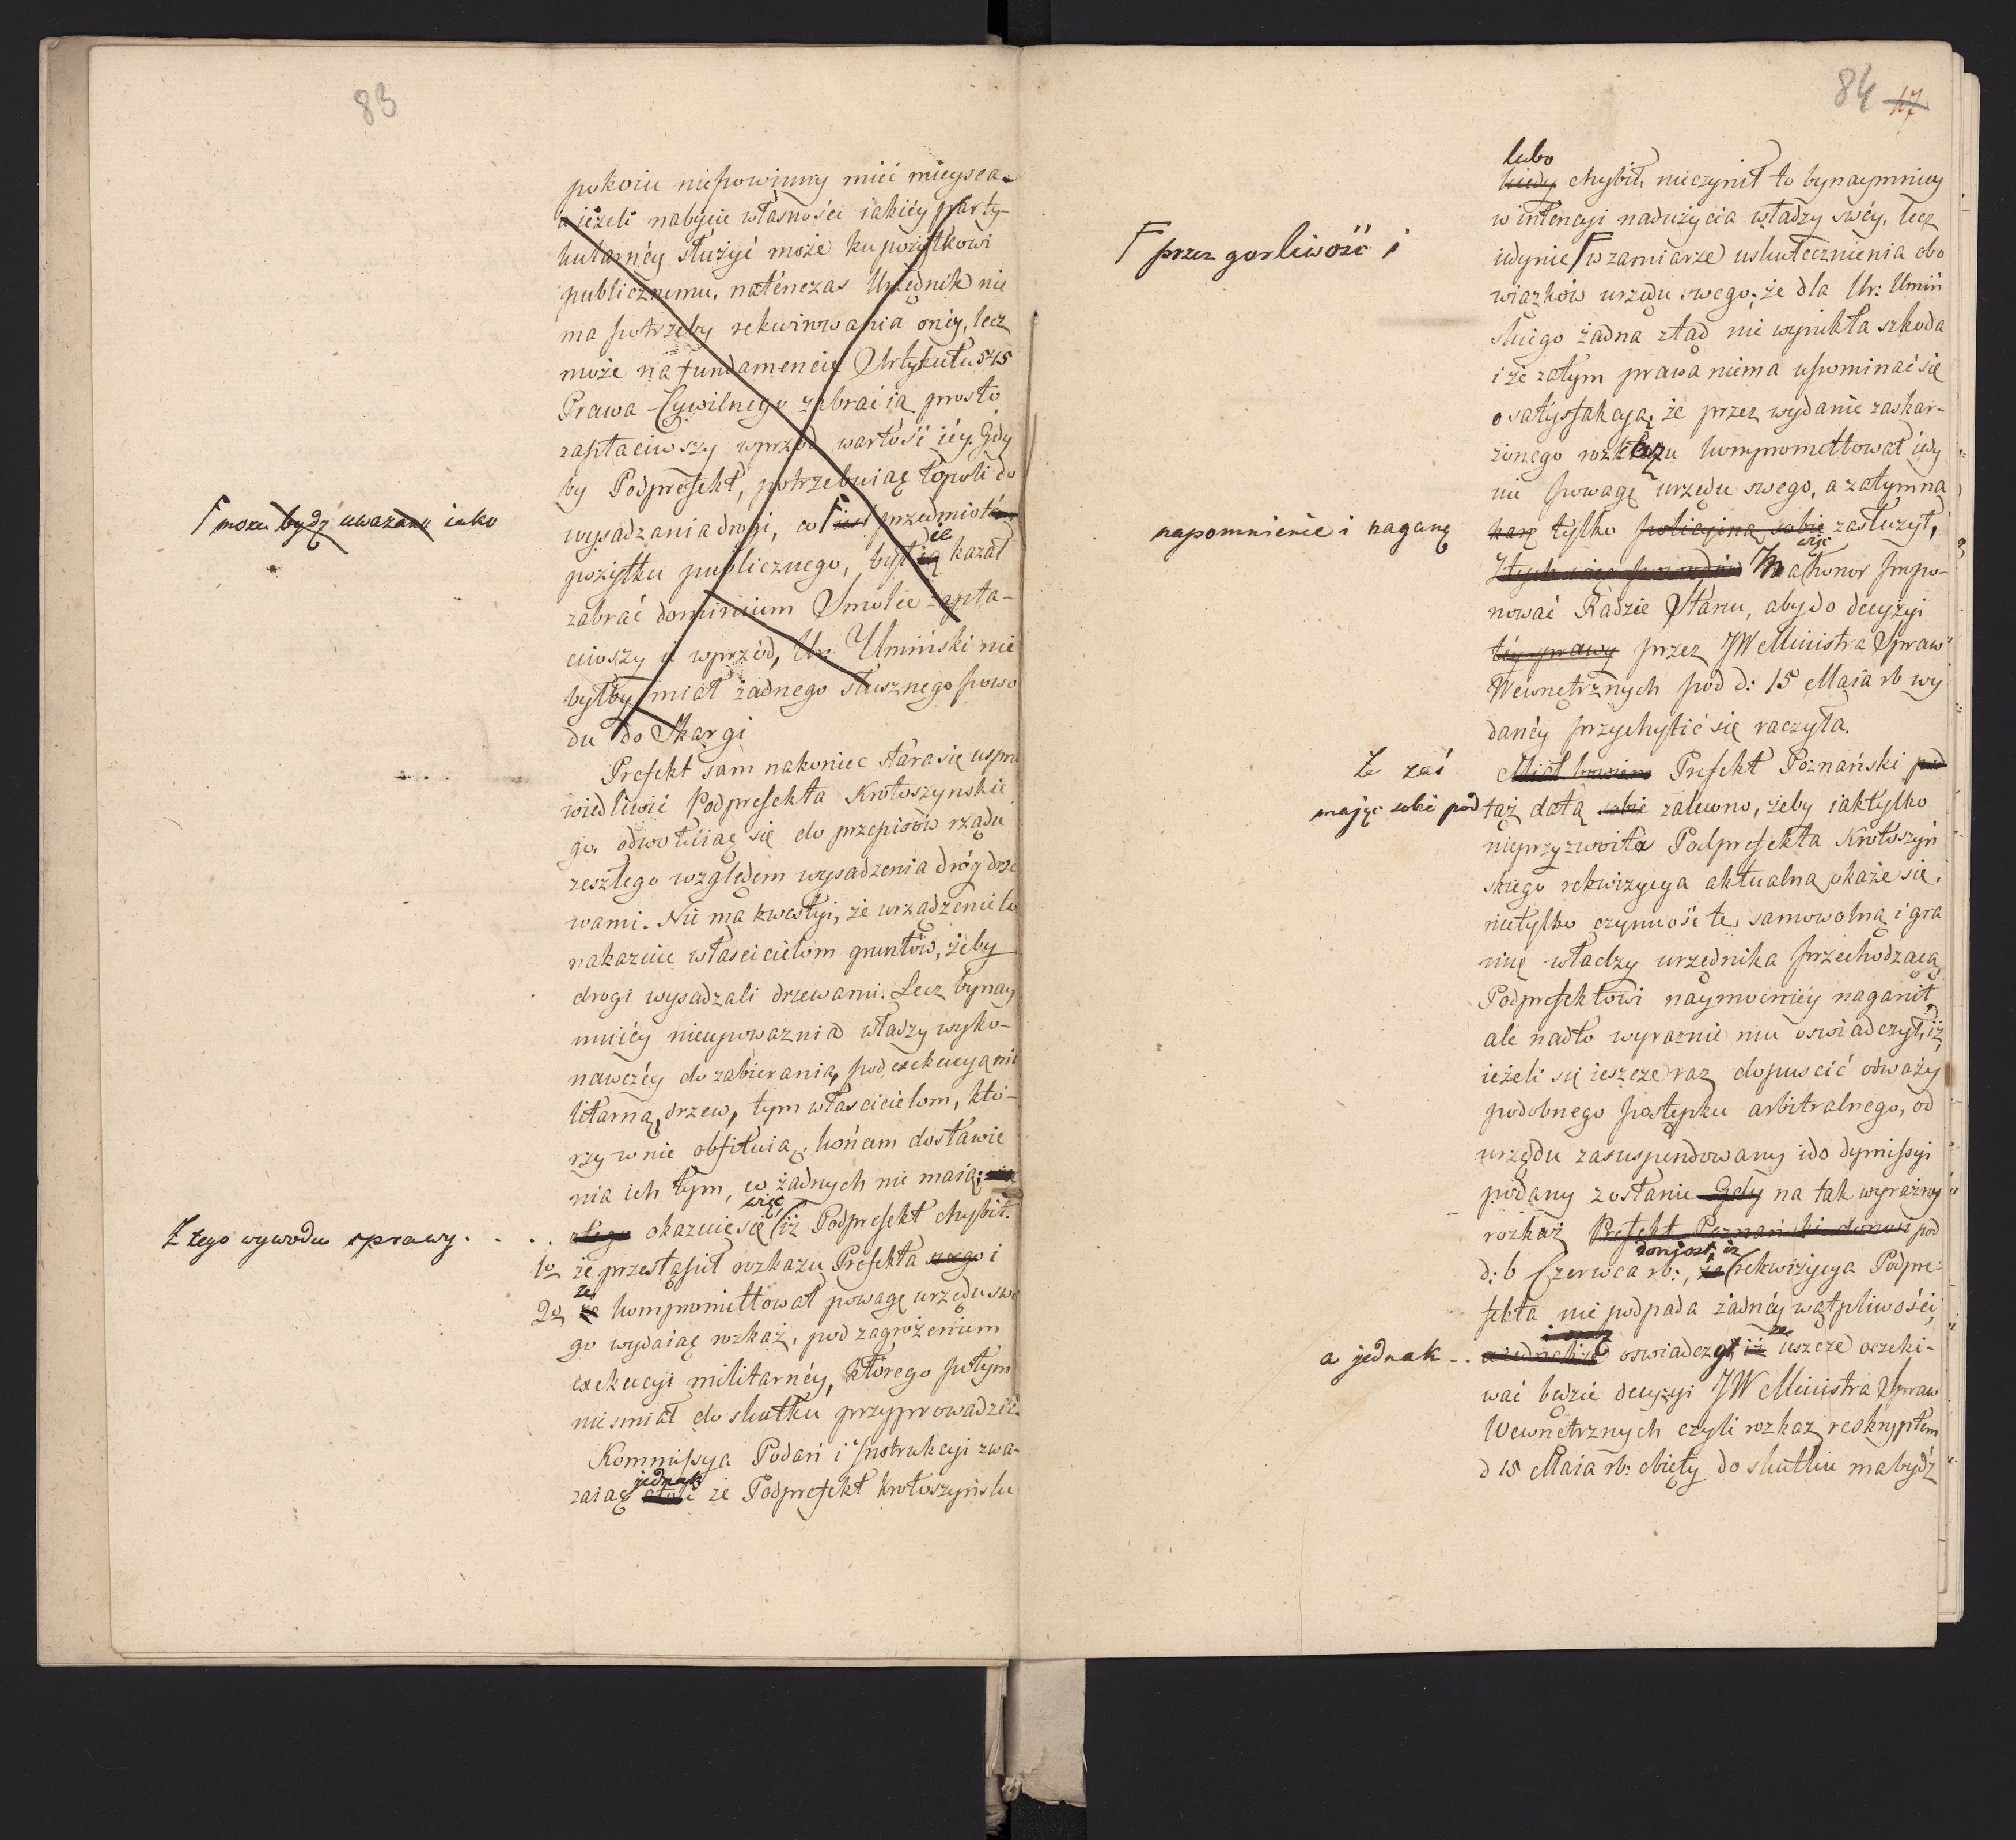 83
pokoiu niepowinny mieć mieysca.
a ieżeli nabycie własności iakiéy party-
kularnéy służyć może ku pożytkowi
publicznemu, natenczas Urzędnik nie
ma potrzeby rekwirowania onéy, lecz
może na fundamencie Artykułu 545
Prawa Cywilnego zabrać ią prosto
zapłaciwszy wprzód wartość iéy. Gdy
by Podprefekt, potrzebuiąc topoli do
Γ może bydz uważane iako
wysadzania drogi, co Γ iest przedmiotem
ie
pożytku publicznego, był ią kazał
zabrać dominium Smolec zapła-
ciwszy i wprzód, Ur: Umiński nie
byłby miał żadnego słusznego powo
du do Skargi
Prefekt sam nakoniec stara się uspra
wiedliwić Podprefekta Krotoszynskie
go, odwołuiąc się do przepisów rządu
zeszłego względem wysadzenia dróg drze
wami. Nie ma kwestyi, że urządzenie to
nakazuie właścicielom gruntów, żeby
drogi wysadzali drzewami. Lecz bynay
mniéy nieupoważnia władzy wyko-
nawczéy do zabierania, pod exekucyą mi
litarną, drzew, tym właścicielom, któ-
rzy w nie obfituią, końcem dostawie
nia ich tym, co żadnych nie maią;
więc
Z tego wywodu sprawy . . . .
ztego okazuie się iż Podprefekt chybił.
1o że przestąpił rozkazu Prefekta swego i
że
2o że kompromittował powagę urzędu swe
go wydaiąc rozkaz, pod zagrożeniem
exekucyi militarnéy, którego potym
nie smiał do skutku przyprowadzić.
Kommissya Podań i Instrukcyi zwa-
jednak
żaiąc atoli że Podprefekt Krotoszyński
84 47
lubo
kiedy chybił, nieczynił to bynaymniey
w intencyi nadużycia władzy swéy, lecz
Γ przez gorliwość i
iedynie Γ w zamiarze uskutecznienia obo
wiązków urzędu swego; że dla Ur: Umiń
skiego żadna ztąd nie wynikła szkoda
i że zatym prawa niema upominać się
o satysfakcyą, że przez wydanie zaskar-
żonego rozkazu kompromittował iedy
nie powagę urzędu swego, a zatym na
napomnienie i naganę
karę tylko policyiną sobie zasłużył,
więc
Ztych więc powodów Ma honor propo-
nować Radzie Stanu, aby do decyzyi
téy sprawy przez JW Ministra Spraw
Wewnętrznych pod d: 15 Maia rb wy
danéy przychylić się raczyła.
Ze zaś
Miał bowiem Prefekt Poznański pod
mając sobie pod
taż datą sobie zalecono, żeby iaktylko
nieprzyzwoita Podprefekta Krotoszyń
skiego rekwizycya aktualną okaże się,
nietylko czynność tę samowolną i gra
nicę władzy urzędnika przechodzącą
Podprefektowi naymocniéy naganił,
ale nadto wyraźnie mu oswiadczył, iż
ieżeli się ieszcze raz dopuscić odważy
podobnego postępku arbitralnego, od
urzędu zasuspendowany i do dymissyi
podany zostanie Gdy na tak wyraźny
rozkaz Prefekt Poznański donosi pod
doniost, iż
d: 6 Czerwca rb:, że rekwizycya Podpre-
fekta nie podpada żadnéy wątpliwości,
że
a jednak . .
a iednakże oswiadczył iż ieszcze oczeki-
wać będzie decyzyi JW Ministra Spraw
Wewnętrznych czyli rozkaz reskryptem
d 15 Maia rb: obięty do skutku ma bydź